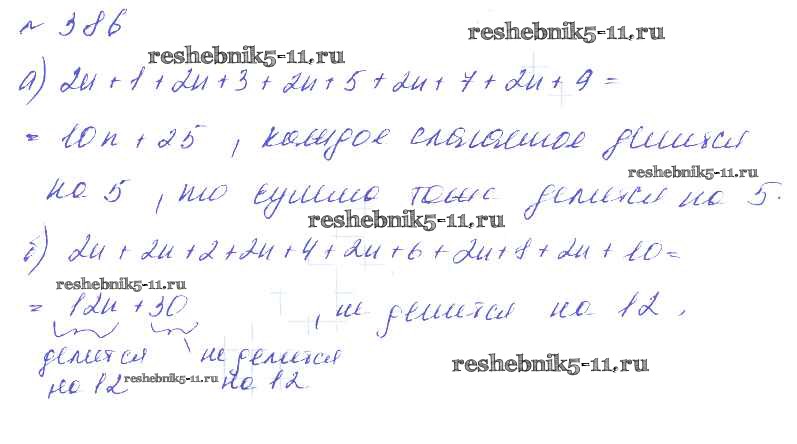 № 386
reshebnik5-11.ru
reshebnik5-11.ru
а) 2n + 1 + 2n + 3 + 2n + 5 + 2n + 7 + 2n + 9 =
= 10n + 25 , каждое слагаемое делится
reshebnik5-11.ru
на 5 , то сумма тоже делится на 5.
reshebnik5-11.ru
б) 2n + 2n + 2 + 2n + 4 + 2n + 6 + 2n + 8 + 2n + 10 =
reshebnik5-11.ru
= 12n + 30 , не делится на 12 .
делится не делится
reshebnik5-11.ru
на 12 reshebnik5-11.ru на 12.